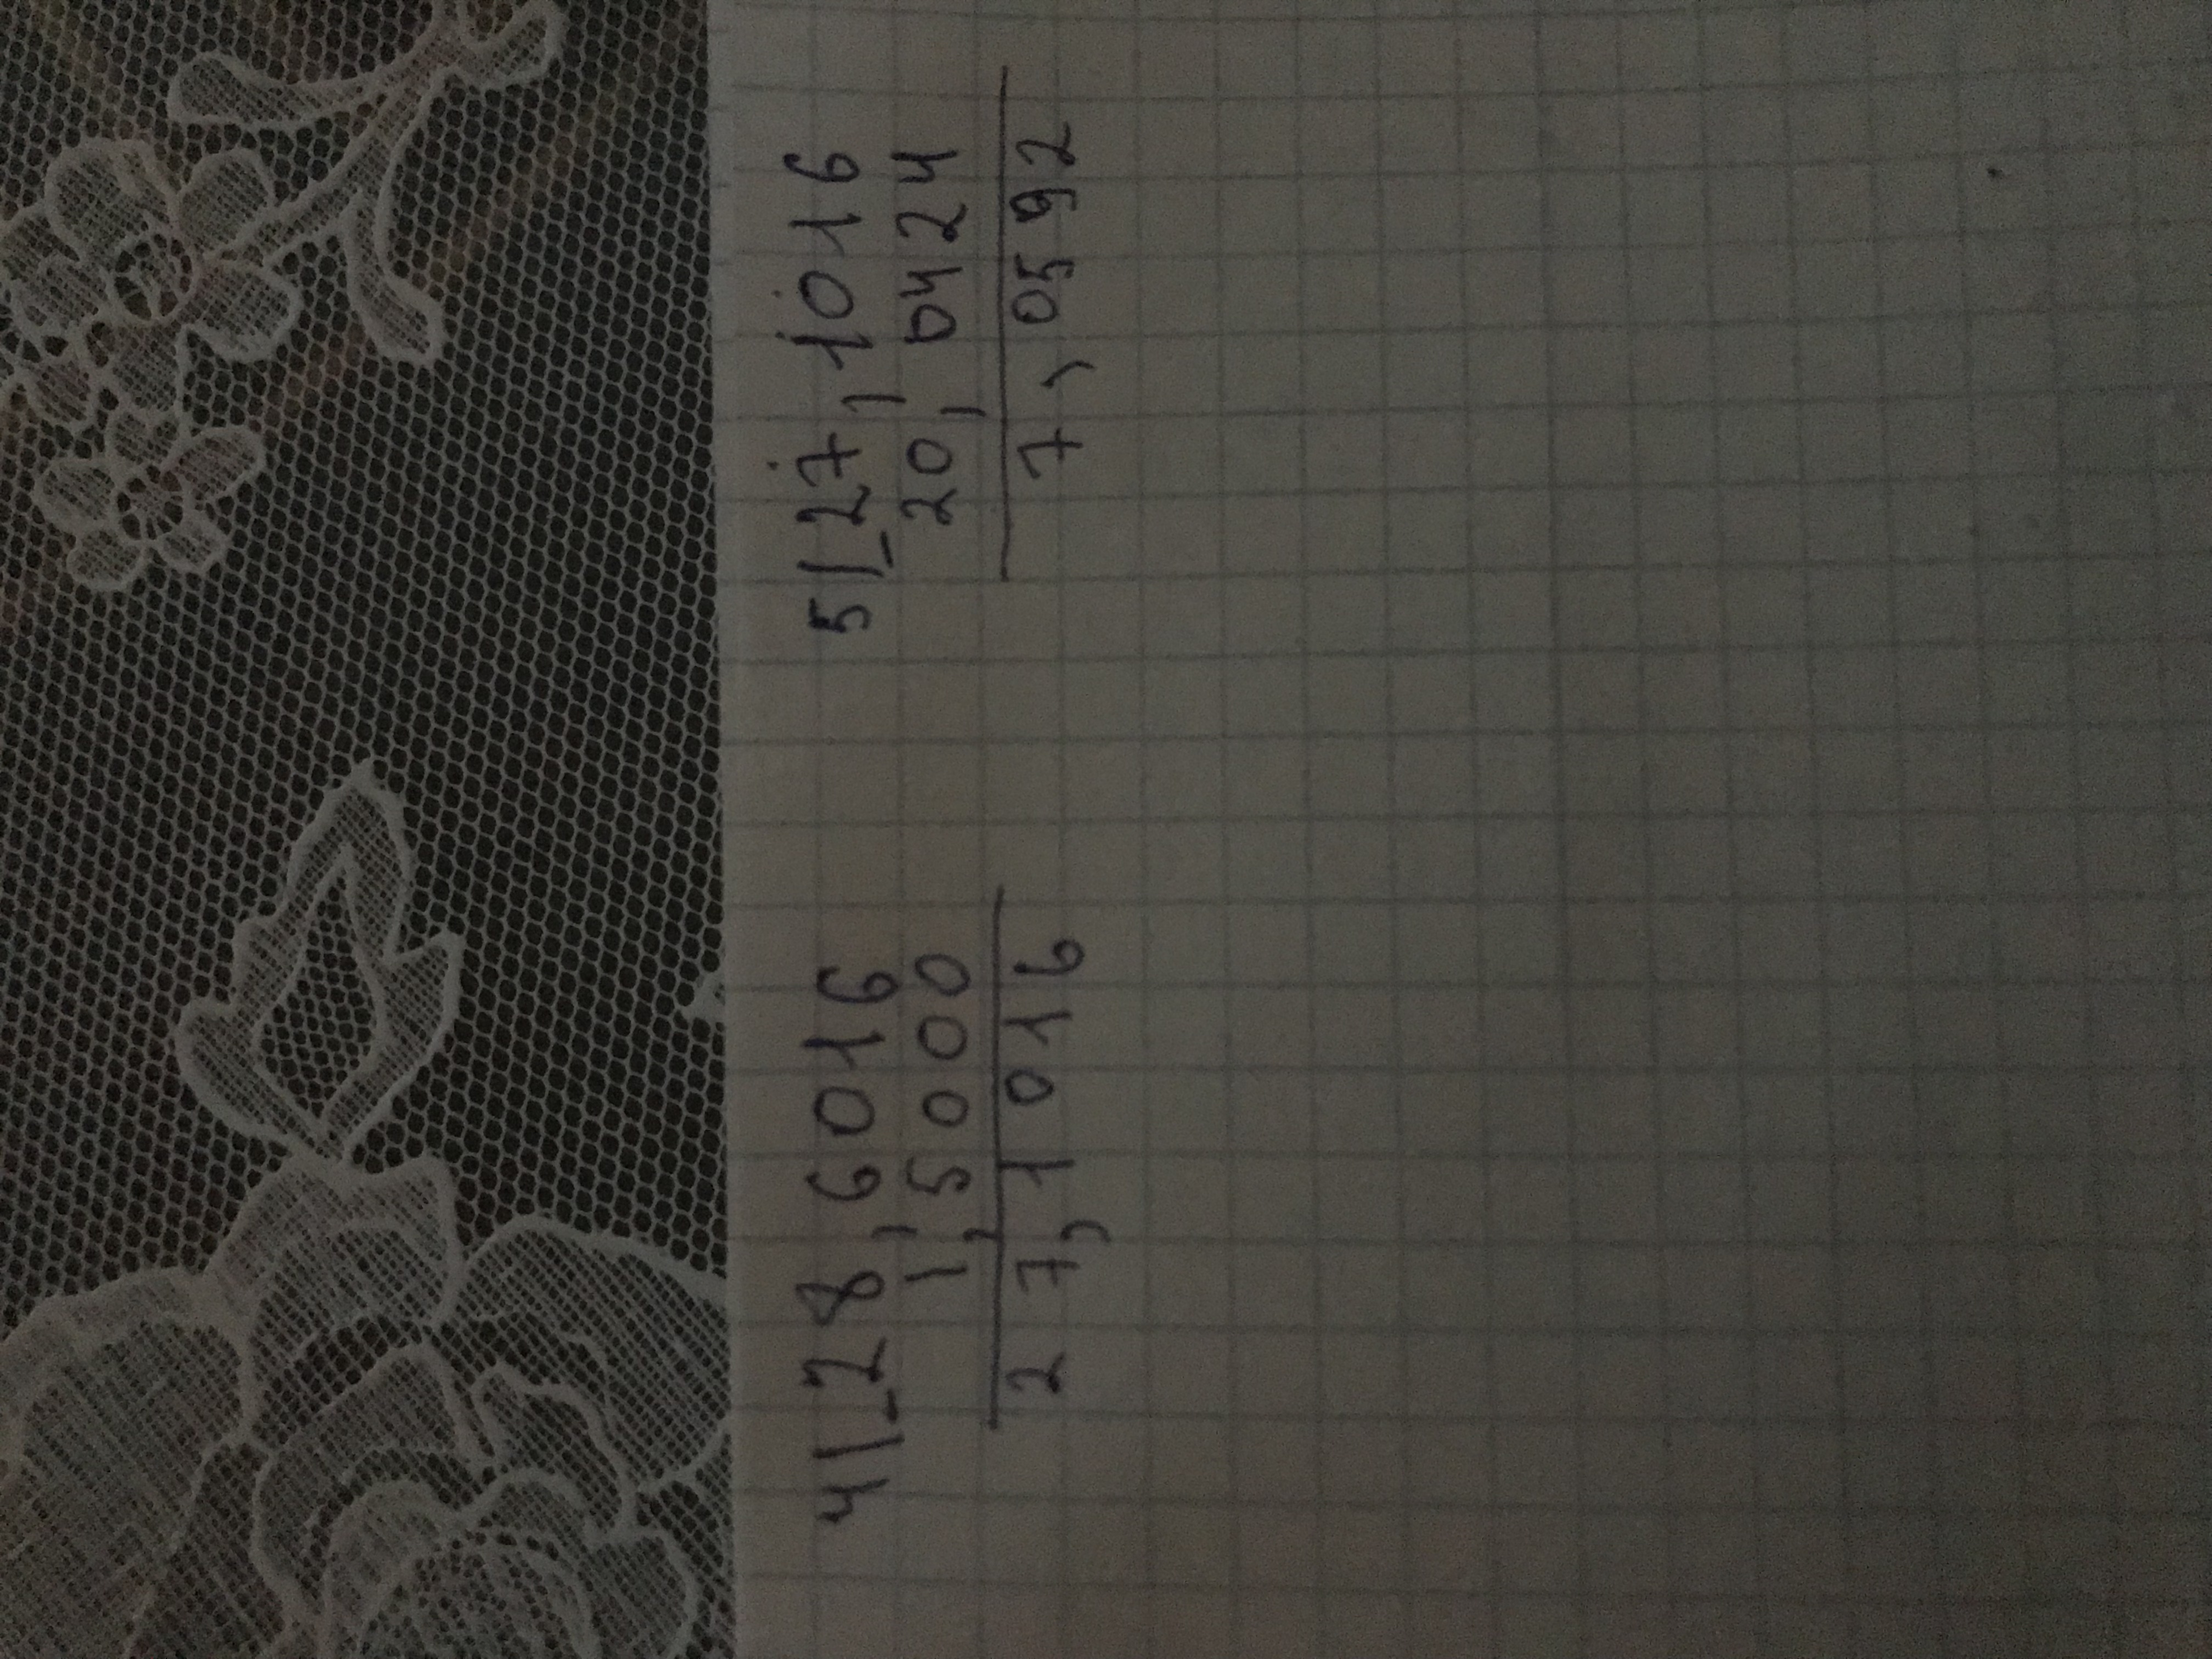 4) - 28,6016
1,5000
27,1016
5) - 27,1016
20,0424
7,0592